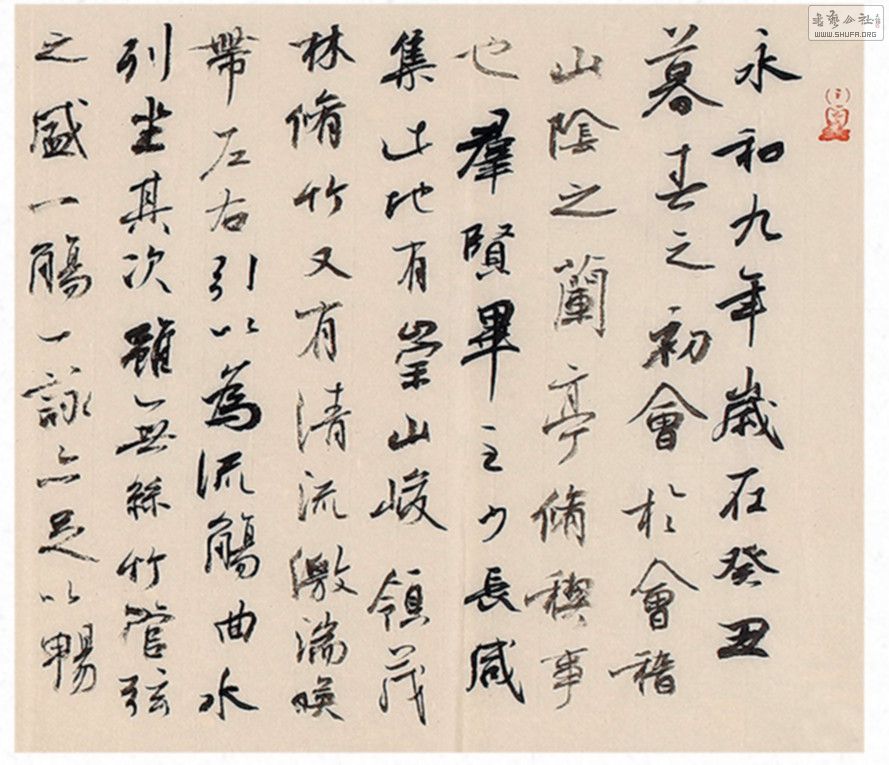 永和九年歲在癸丑
暮春之初會於會稽
山陰之蘭亭脩禊事
也羣賢畢至少長咸
集此地有崇山峻領茂
林脩竹又有清流激湍暎
帶左右引以為流觴曲水
列坐其次雖無絲竹管弦
之盛一觴一詠亦足以暢
WWW.SHUFA.ORG